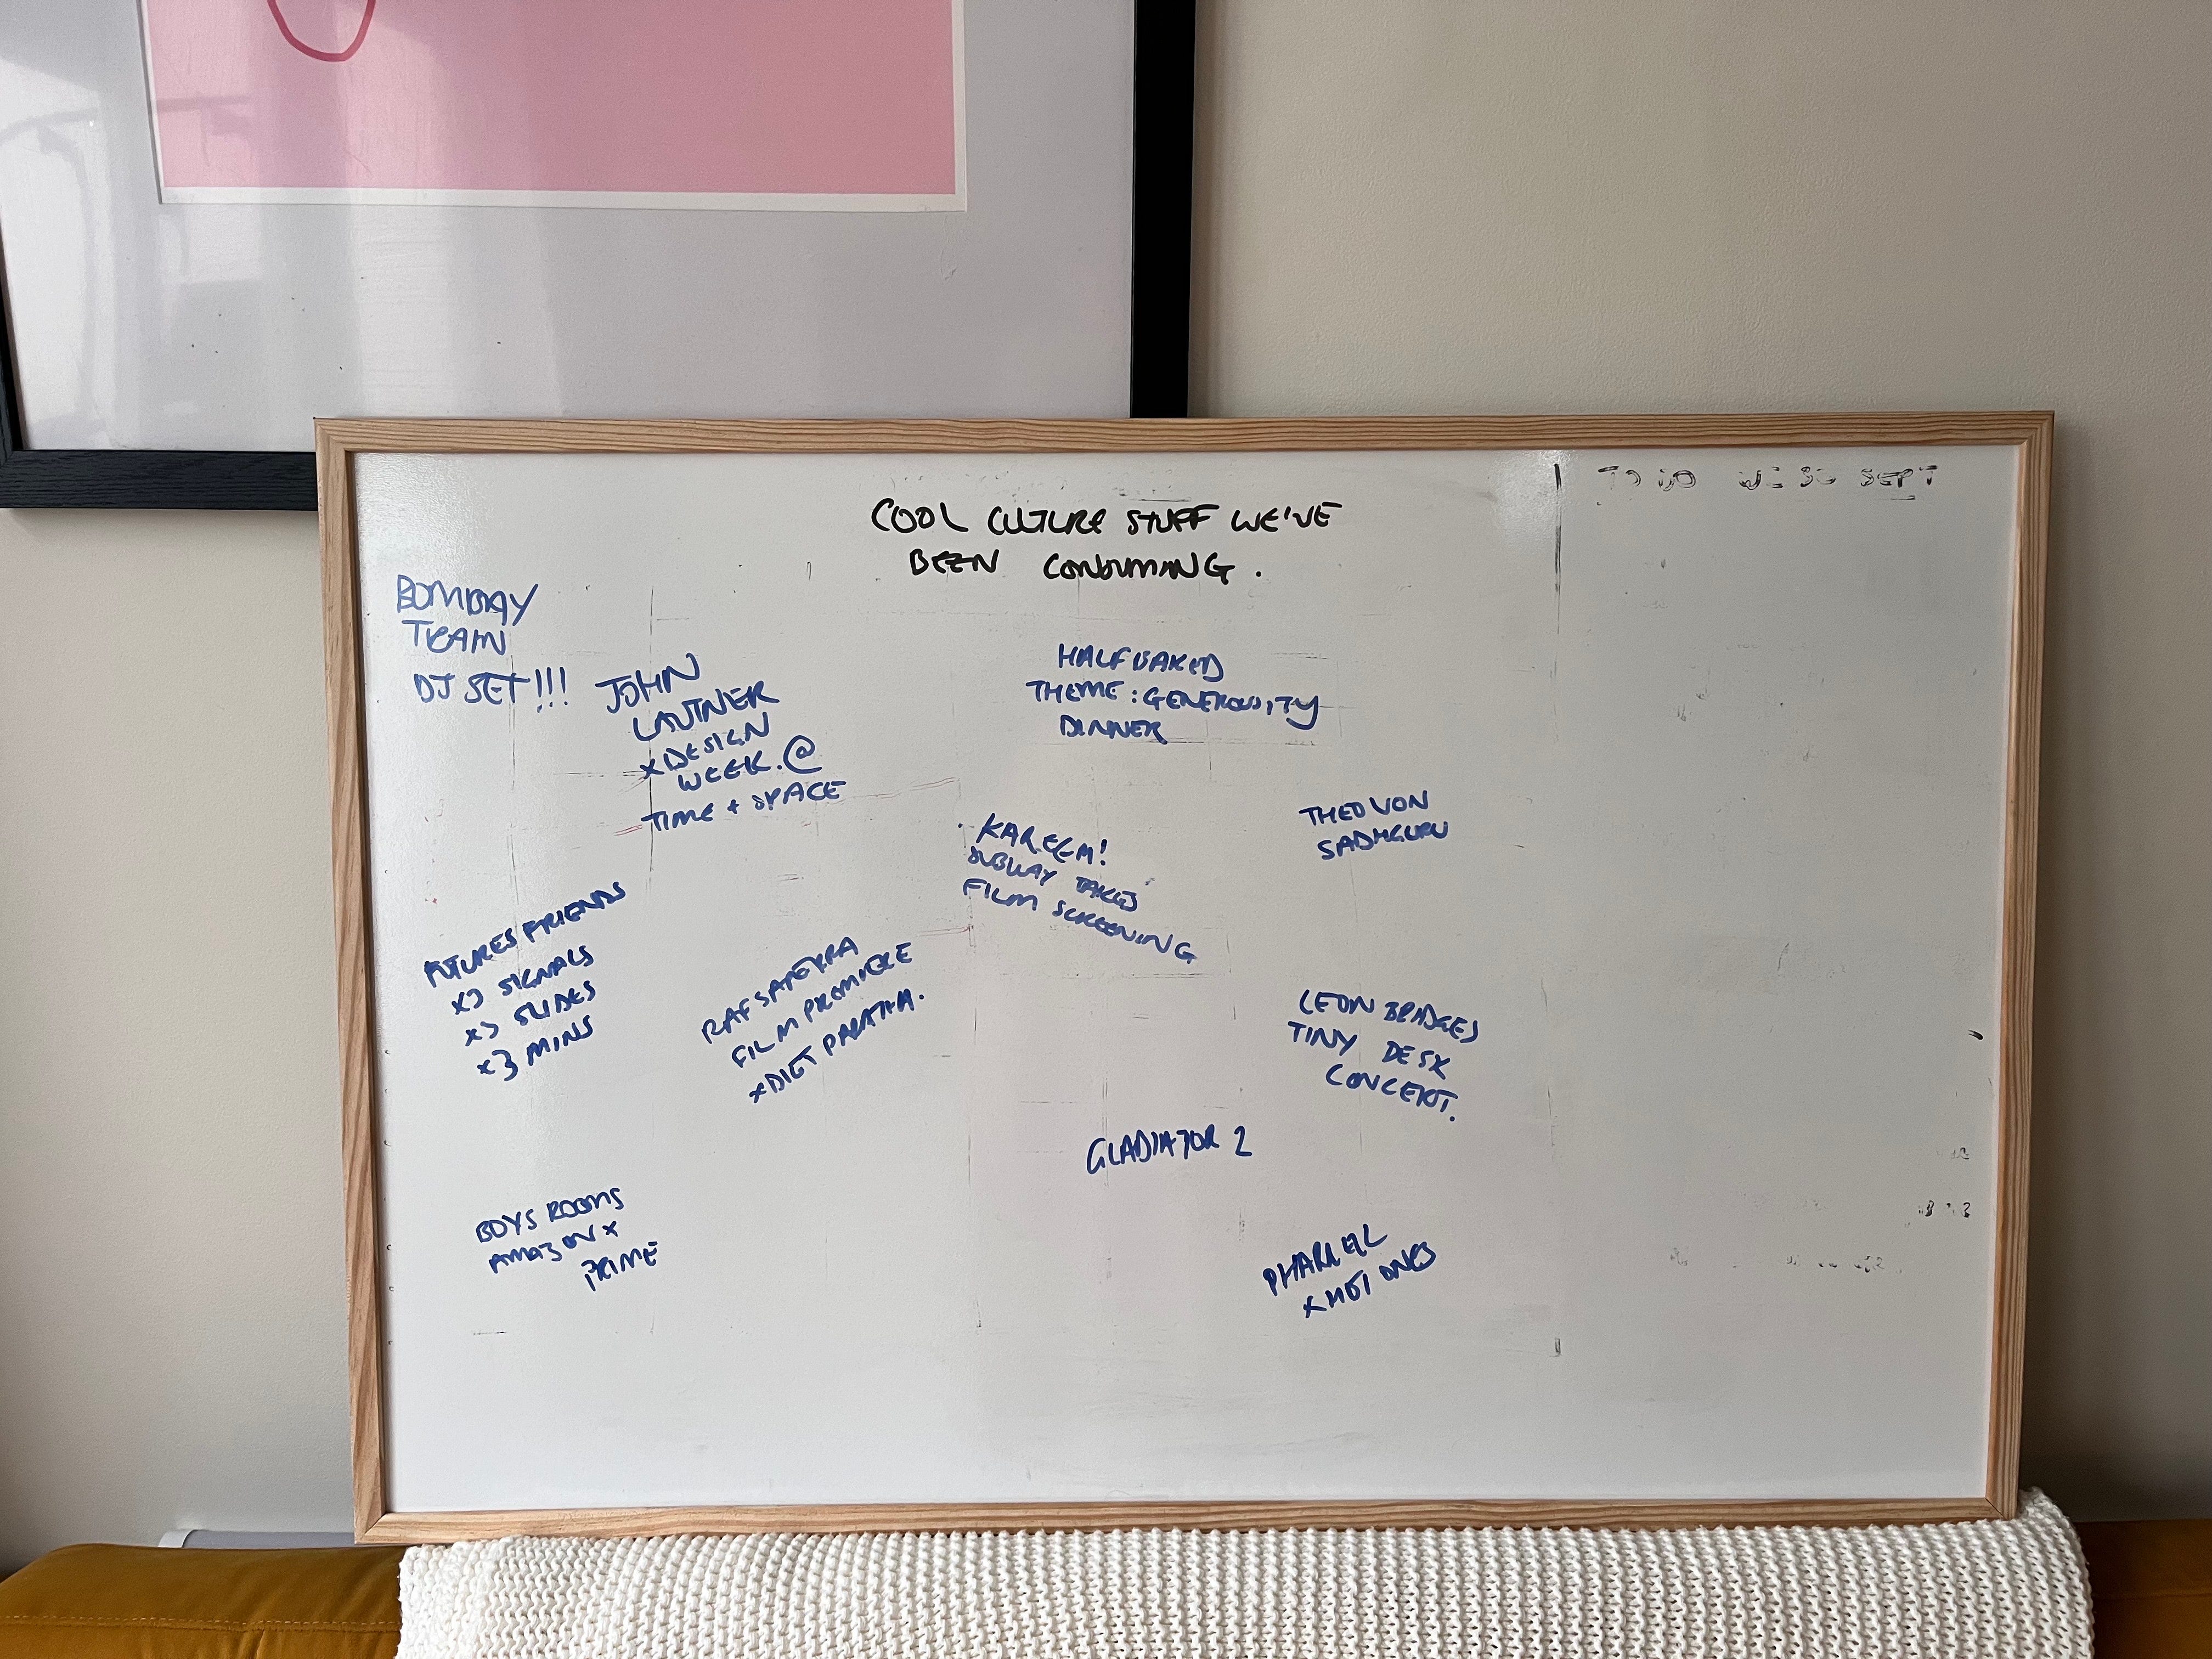 COOL CULTURE STUFF WE'VE
BEEN CONSUMING.
TO DO WE 30 SEPT
BOMBAY
TRAIN
DJ SET!!!
JOHN
LAUTNER
x DESIGN
WEEK. @
TIME + SPACE
HALF BAKED
THEME: GENEROSITY
DINNER
KAREEM!
SUBWAY TAKES
FILM SCREENING
THEO VON
SADHGURU
FUTURES FRIENDS
x3 SIGNALS
x3 SLIDES
x3 MINS
FILM PREMIERE
x DIET PARATHA.
LEON BRIDGES
TINY DESK
CONCERT.
GLADIATOR 2
BOYS ROOMS
AMAZON x
PRIME
PHARRELL
x HOT ONES